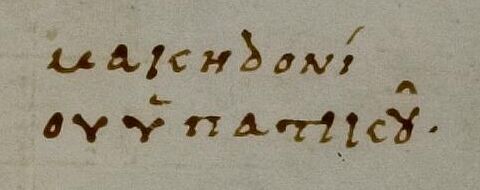 μακηδονί
ου ὑπατικοῦ.